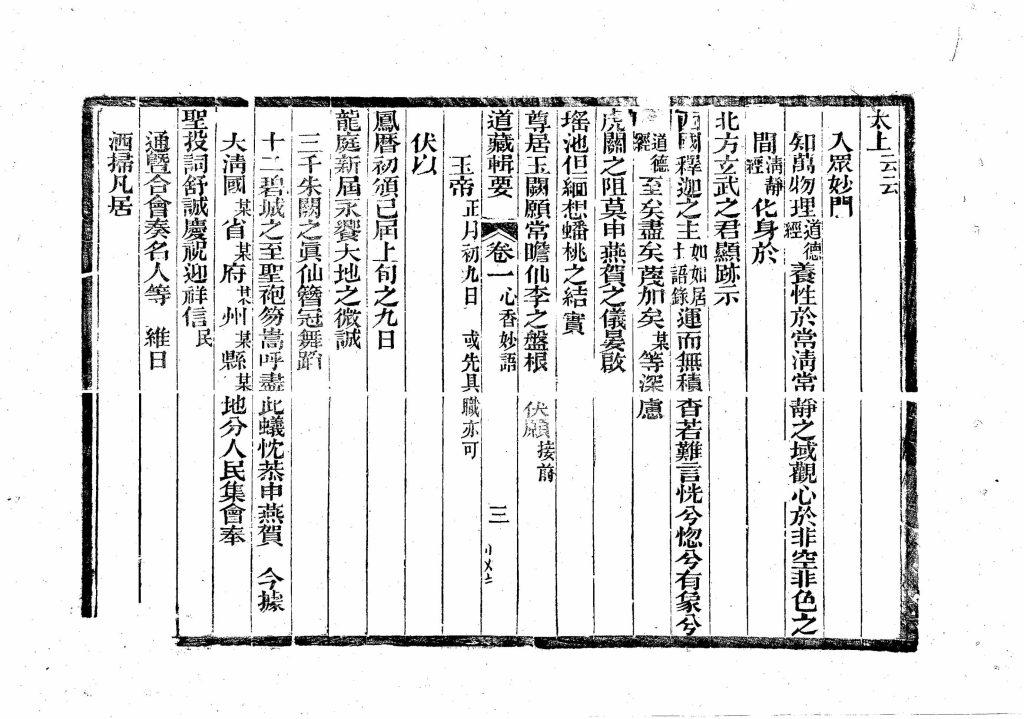 太上云云
入眾妙門
知萬物理道德經養性於常淸常靜之域觀心於非空非色之
間淸靜經化身於
北方玄武之君顯跡示
國釋迦之主如如居士語錄運而無積杳若難言恍兮惚兮有象兮
道德經至矣盡矣蔑加矣某等深慮
虎關之阻莫申燕賀之儀晏啟
瑤池但緬想蟠桃之結實
尊居玉闕願常瞻仙李之盤根 伏願接前
道藏輯要 卷一 心香妙語 三
玉帝正月初九日 或先具職亦可
伏以
鳳曆初頒已屆上旬之九日
龍庭新屆永饗天地之微誠
三千朱闕之眞仙簪冠舞蹈
十二碧城之至聖袍笏嵩呼盡此蟻忱恭申燕賀 今據
大淸國某省某府某州某縣某地分人民集會奉
聖投詞舒誠慶祝迎祥信民
通曁合會奏名人等 維日
洒掃凡居